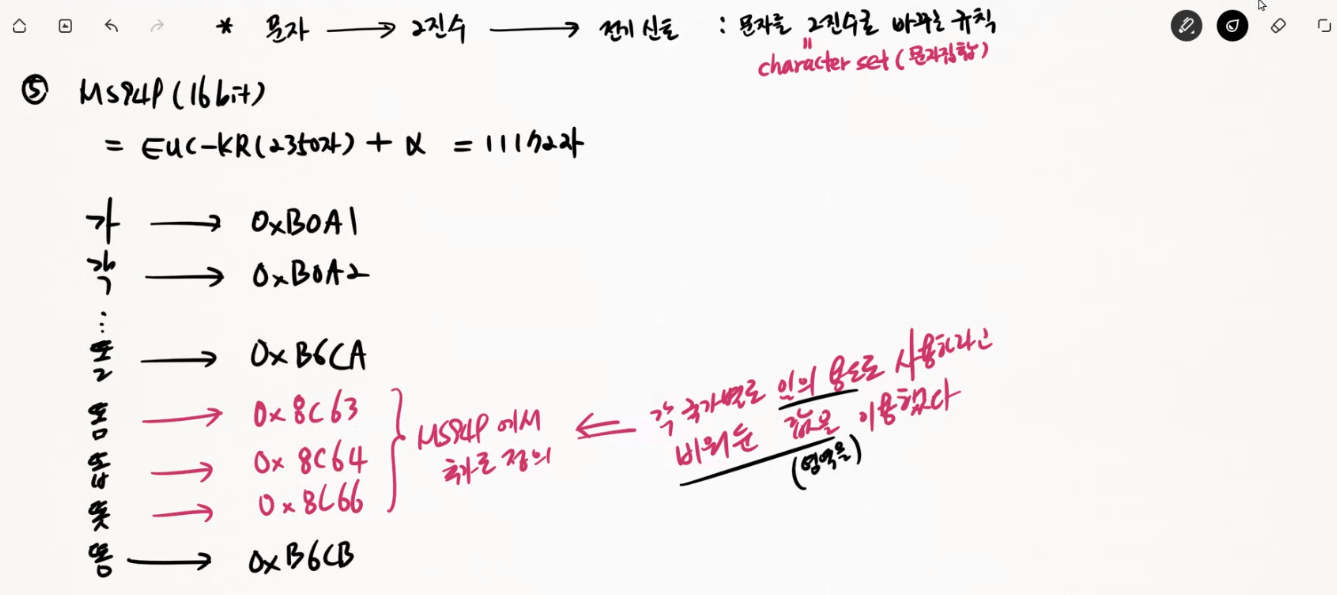 * 문자 → 2진수 → 전기 신호 : 문자를 2진수로 바꾸는 규칙
= character set (문자집합)
⑤ MS949 (16bit)
= EUC-KR(2350자) + α = 11172자
가 → 0xB0A1
각 → 0xB0A2
⋮
똘 → 0xB6CA
똠 → 0x8C63
똡 → 0x8C64
똣 → 0x8C66
똥 → 0xB6CB
MS949에서
추가로 정의
⇐ 각 국가별로 임의 용도로 사용하라고
비워둔 값을 이용했다
(영역을)